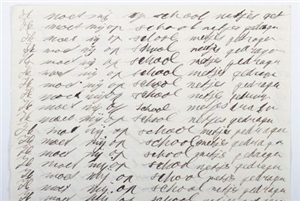 Ik moet mij op school netjes gedragen
Ik moet mij op school netjes gedragen
Ik moet mij op school netjes gedragen
Ik moet mij op school netjes gedragen
Ik moet mij op school netjes gedragen
Ik moet mij op school netjes gedragen
Ik moet mij op school netjes gedragen
Ik moet mij op school netjes
Ik moet mij op school netjes gedragen
Ik moet mij op school netjes gedragen
Ik moet mij op school netjes gedragen
Ik moet mij op school netjes gedragen
Ik moet mij op school netjes gedragen
Ik moet mij op school netjes gedragen